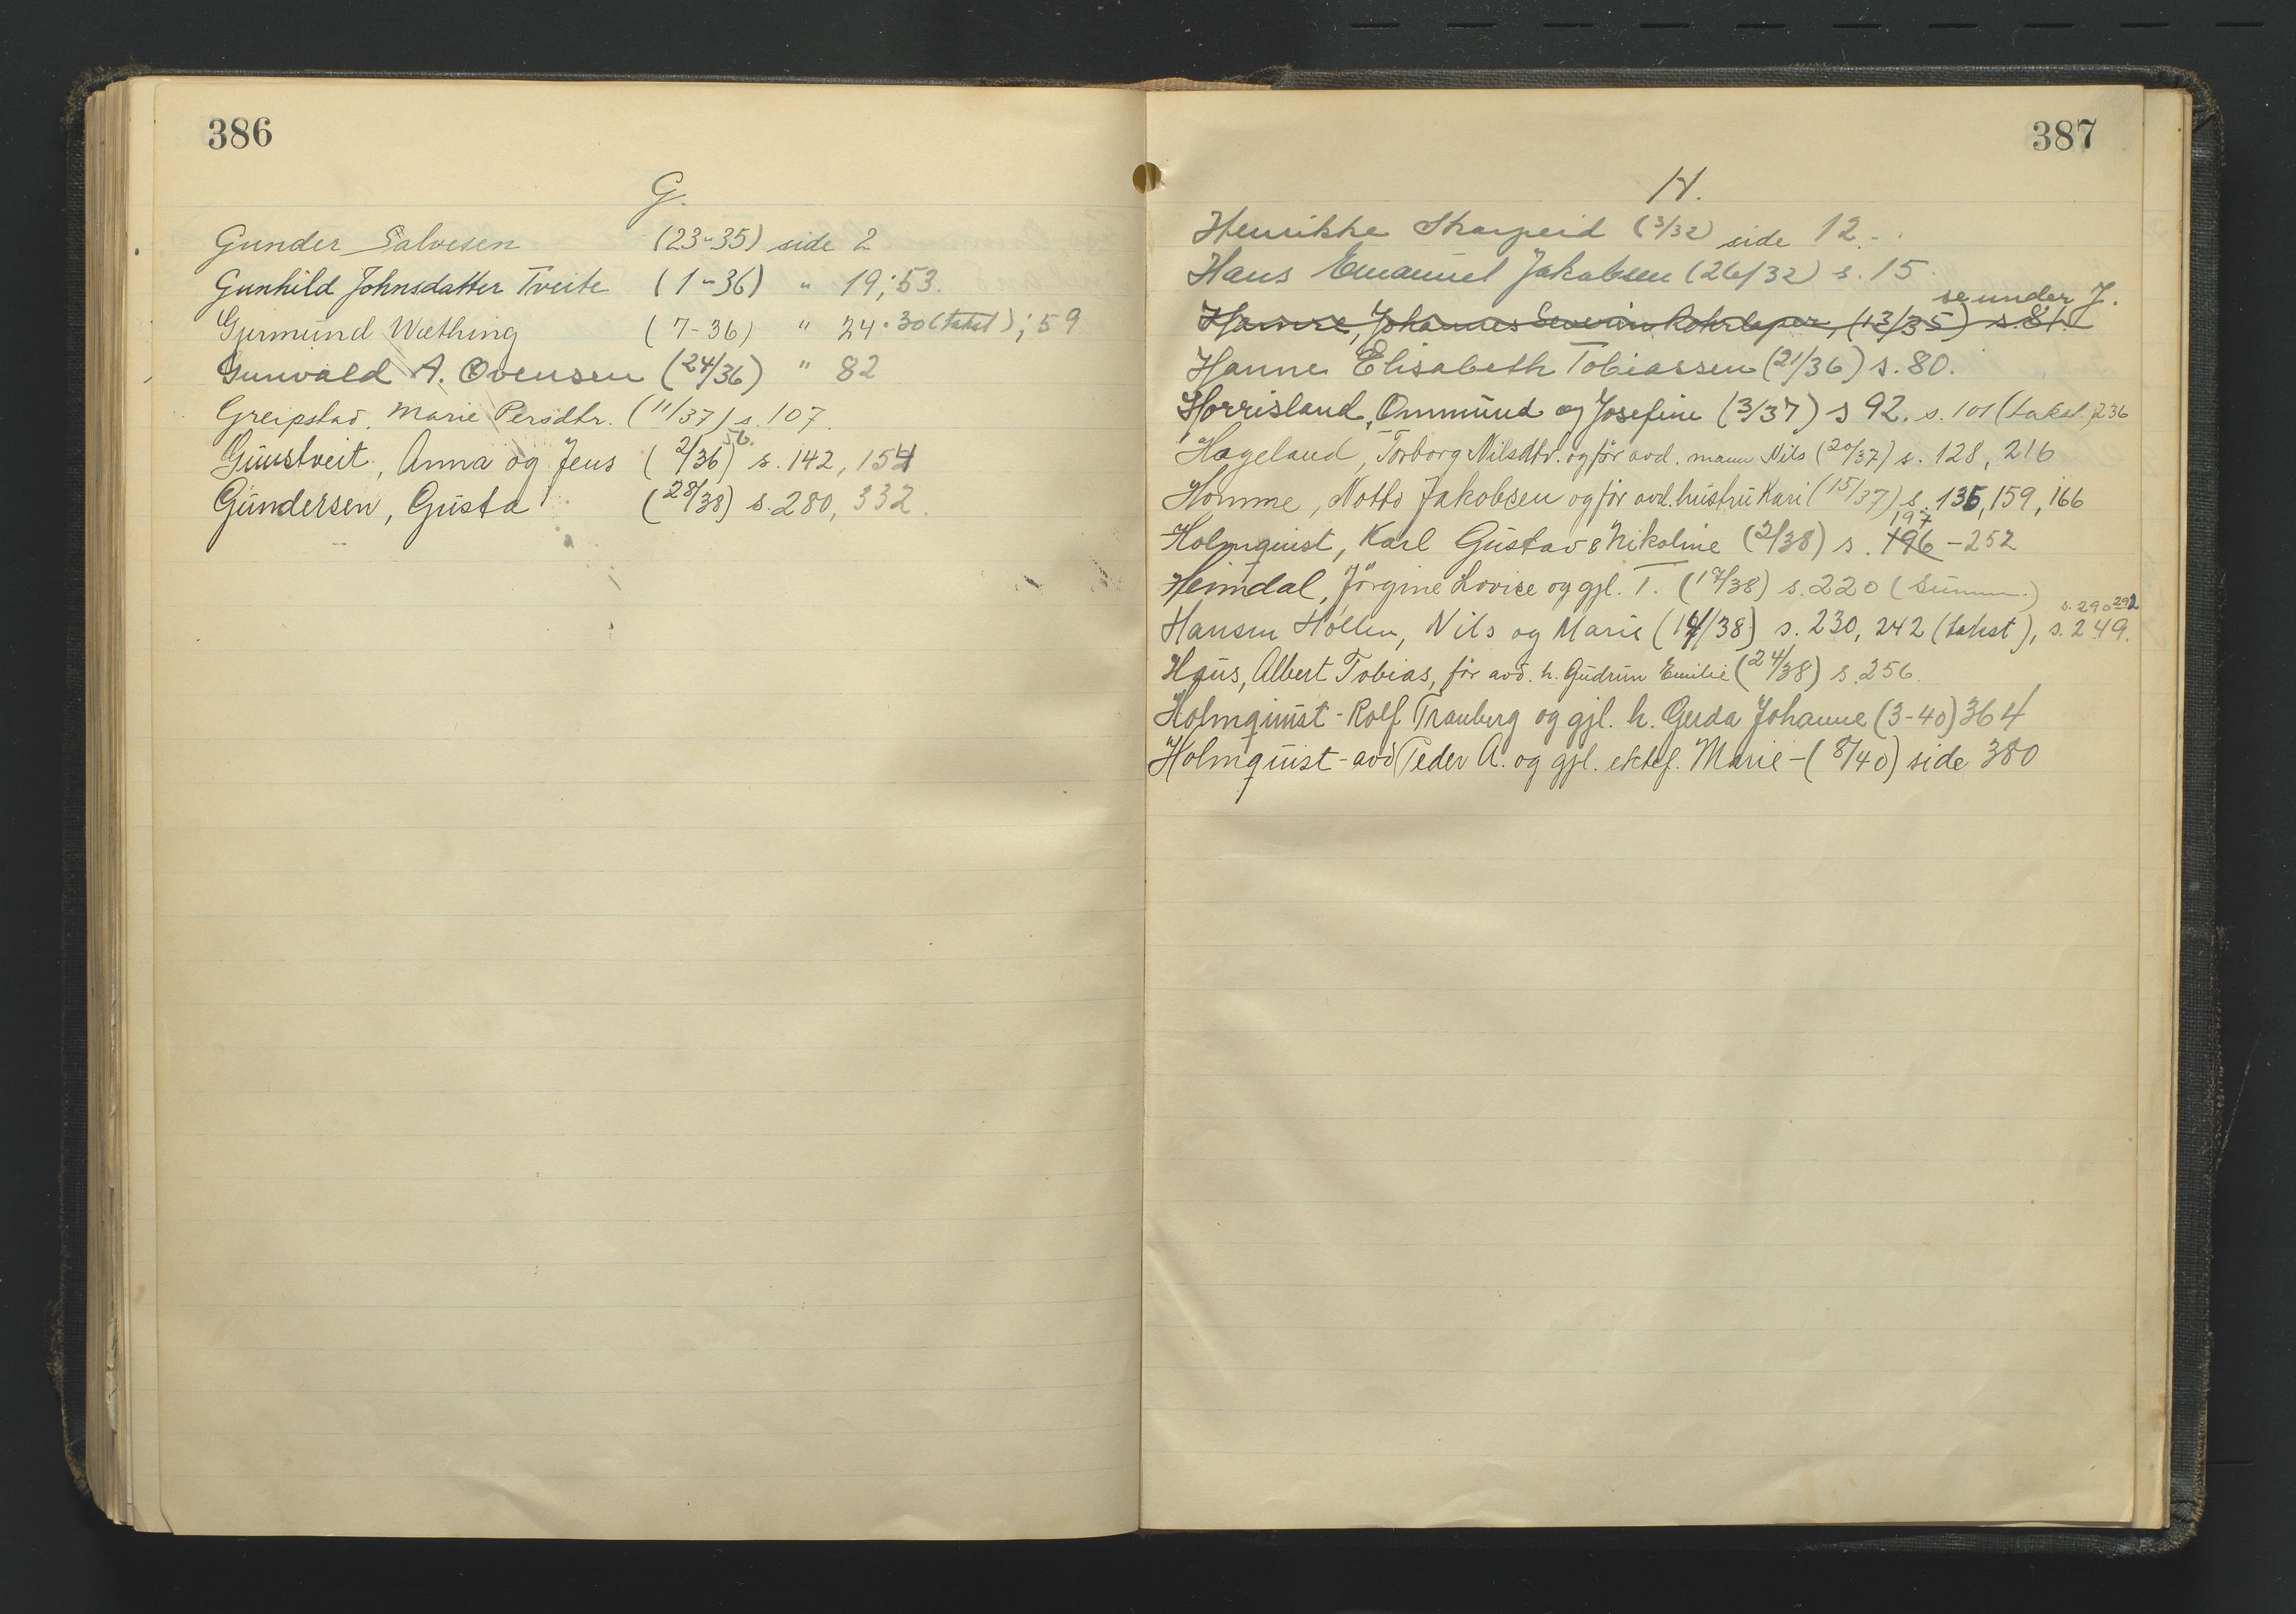 386
G.
Gunder Salvesen (23-35) side 2
Gunhild Johnsdatter Tveite (1-36) " 19; 53.
Gjermund Wæthing (7-36) " 24. 30 (takst); 59
Gunvald A. Ovensen (24/36) " 82
Greipstad, Marie Persdtr. (11/37) s. 107.
56.
Guustveit, Anna og Jens (2/36) s. 142, 154
Gundersen, Gusta (28/38) s. 280, 332.
387
H.
Henrikke Skarpeid (3/32) side 12.
Hans Emanuel Jakobsen (26/32) s. 15.
se under J.
Hamre, Johannes Severin (13/35) s. 81.
Hanne Elisabeth Tobiassen (21/36) s. 80.
Horrisland, Ommund og Josefine (3/37) s 92. s. 101 (takst) 236
Hageland, Torborg Nilsdtr. og for avd. mann Nils (20/37) s. 128, 216
Homme, Notto Jakobsen og för avd. hustru Kari (15/37) s. 135, 159, 166
197
Holmquist, Karl Gustav & Nikoline (2/38) s. 196 - 252
Heimdal, Jörgine Lovise og gjl. T. (17/38) s. 220 (Summ.)
s. 290 292
Hansen Hollen, Nils og Marie (14/38) s. 230, 242 (takst), s. 249.
Haus, Albert Tobias, för avd. h. Gudrun Emilie (24/38) s. 256.
Holmquist - Rolf Trauberg og gjl. h. Gerda Johanne (3-40) 364
Holmquist - avd Peder A. og gjl. ektef. Marie - (8/40) side 380